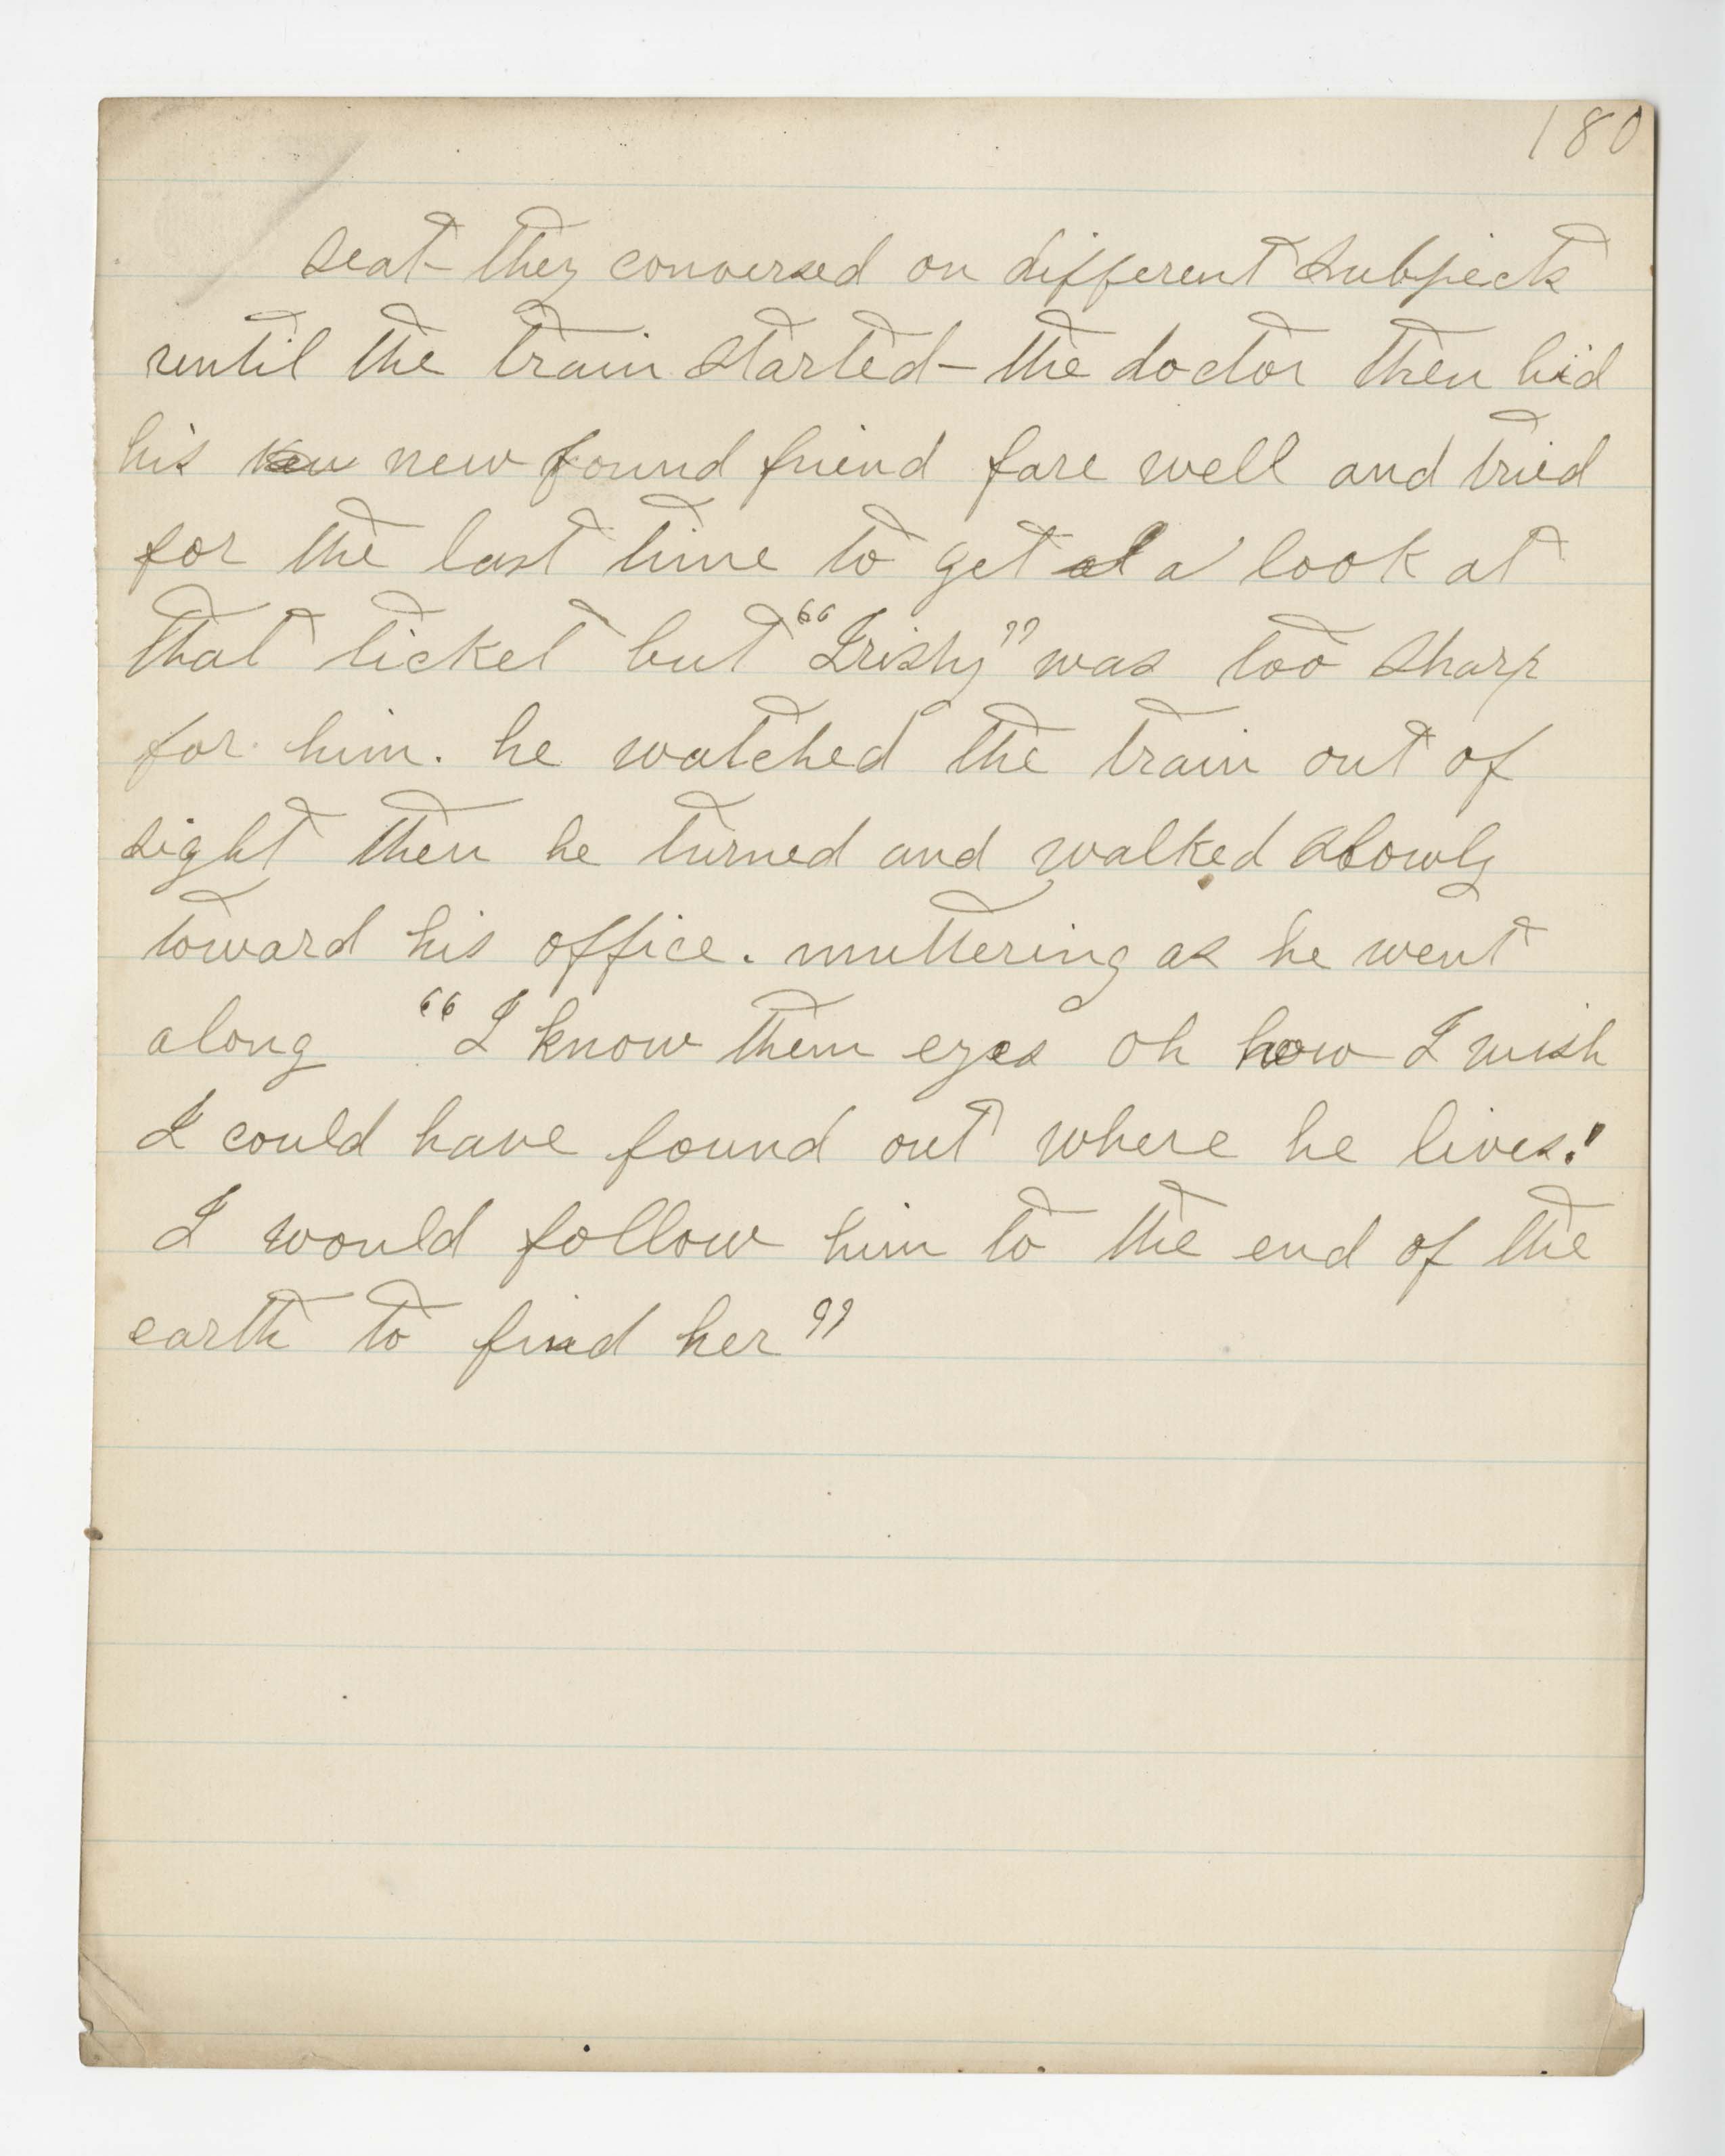 180
seat they conversed on different subjects
until the train started – the doctor then bid
his new found friend fare well and tried
for the last time to get a look at
that ticket but "Irishy" was too sharp
for him. he watched the train out of
sight then he turned and walked slowly
toward his office. muttering as he went
along "I know them eyes oh how I wish
I could have found out where he lives!
I would follow him to the end of the
earth to find her"